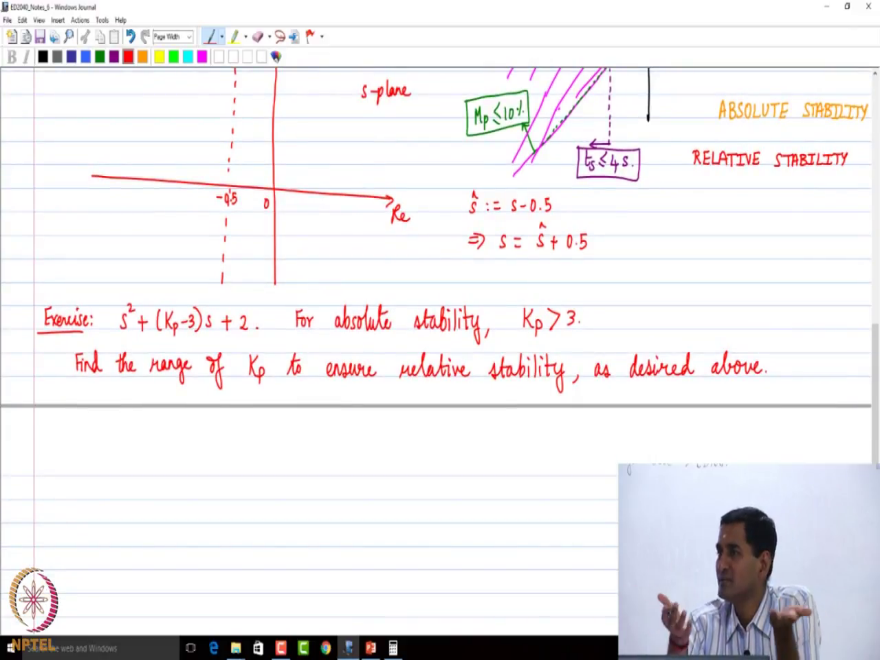 ED2040_Notes_6 - Windows Journal
File Edit View Insert Actions Tools Help
Page Width
B I
s-plane
Mp ≤ 10%
ABSOLUTE STABILITY
ts ≤ 4s.
RELATIVE STABILITY
-0.5 0
Re
ŝ := s-0.5
⇒ s = ŝ + 0.5
Exercise: s² + (Kp-3)s + 2. For absolute stability, Kp > 3.
Find the range of Kp to ensure relative stability, as desired above.
NPTEL
the web and Windows